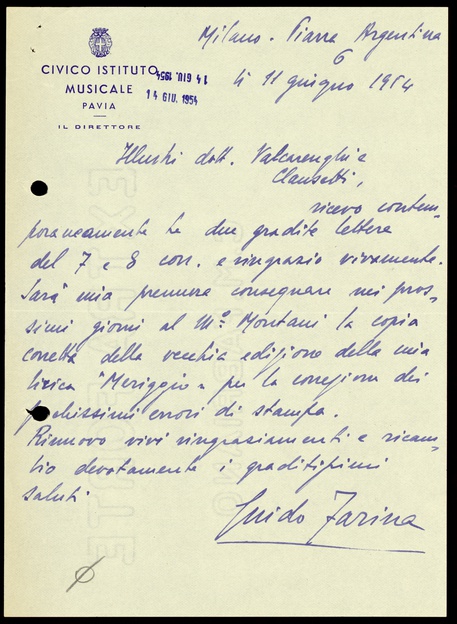 Milano - Piazza Argentina
6
CIVICO ISTITUTO
MUSICALE
PAVIA
IL DIRETTORE
14 GIU. 1954
14 GIU. 1954
li 11 giugno 1954
Illustri dott. Valcarenghi e
Clausetti,
ricevo contem-
poraneamente le due gradite lettere
del 7 e 8 corr. e ringrazio vivamente.
Sarà mia premura consegnare nei pros-
simi giorni al M.o Montani la copia
corretta della vecchia edizione della mia
lirica "Meriggio" per la correzione dei
pochissimi errori di stampa.
Rinnovo vivi ringraziamenti e ricam-
bio devotamente i graditissimi
saluti
Guido Farina